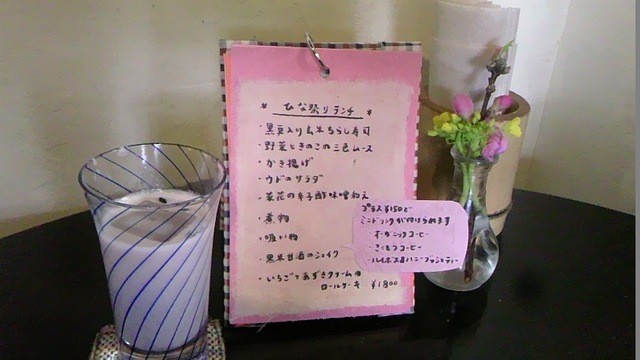 * ひな祭りランチ *
・黒豆入り玄米ちらし寿司
・野菜ときのこの三色ムース
・かき揚げ
・ウドのサラダ
・菜花の辛子酢味噌和え
・煮物
・吸い物
・黒米甘酒のシェイク
・いちごとあずきクリームの
ロールケーキ ¥1800
プラス¥150で
ミニドリンクが付けられます
オーガニックコーヒー
コーヒー